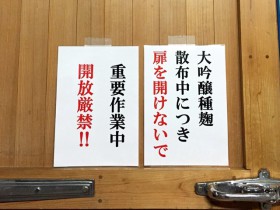 大吟醸種麹
散布中につき
扉を開けないで
重要作業中
開放厳禁!!